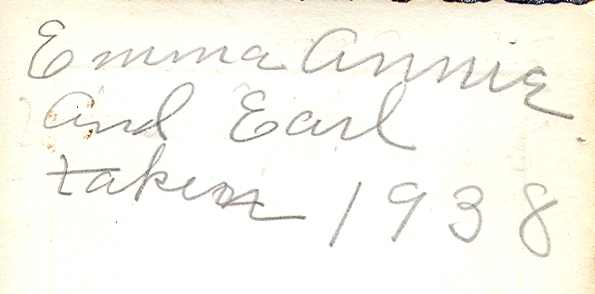 Emma Annie
and Earl
taken 1938